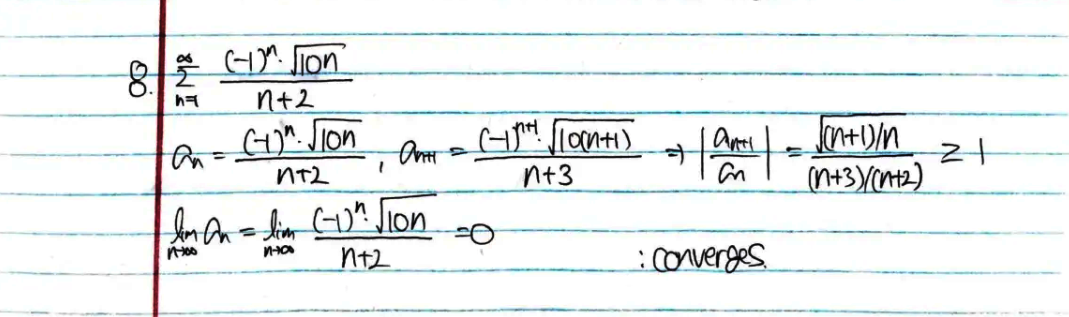 8. \sum_{n=1}^{\infty} \frac{(-1)^n \cdot \sqrt{10n}}{n+2}
a_n = \frac{(-1)^n \cdot \sqrt{10n}}{n+2}, a_{n+1} = \frac{(-1)^{n+1} \cdot \sqrt{10(n+1)}}{n+3} \Rightarrow \left|\frac{a_{n+1}}{a_n}\right| = \frac{\sqrt{(n+1)/n}}{(n+3)/(n+2)} \geq 1
\lim_{n \to \infty} a_n = \lim_{n \to \infty} \frac{(-1)^n \cdot \sqrt{10n}}{n+2} = 0 : converges.